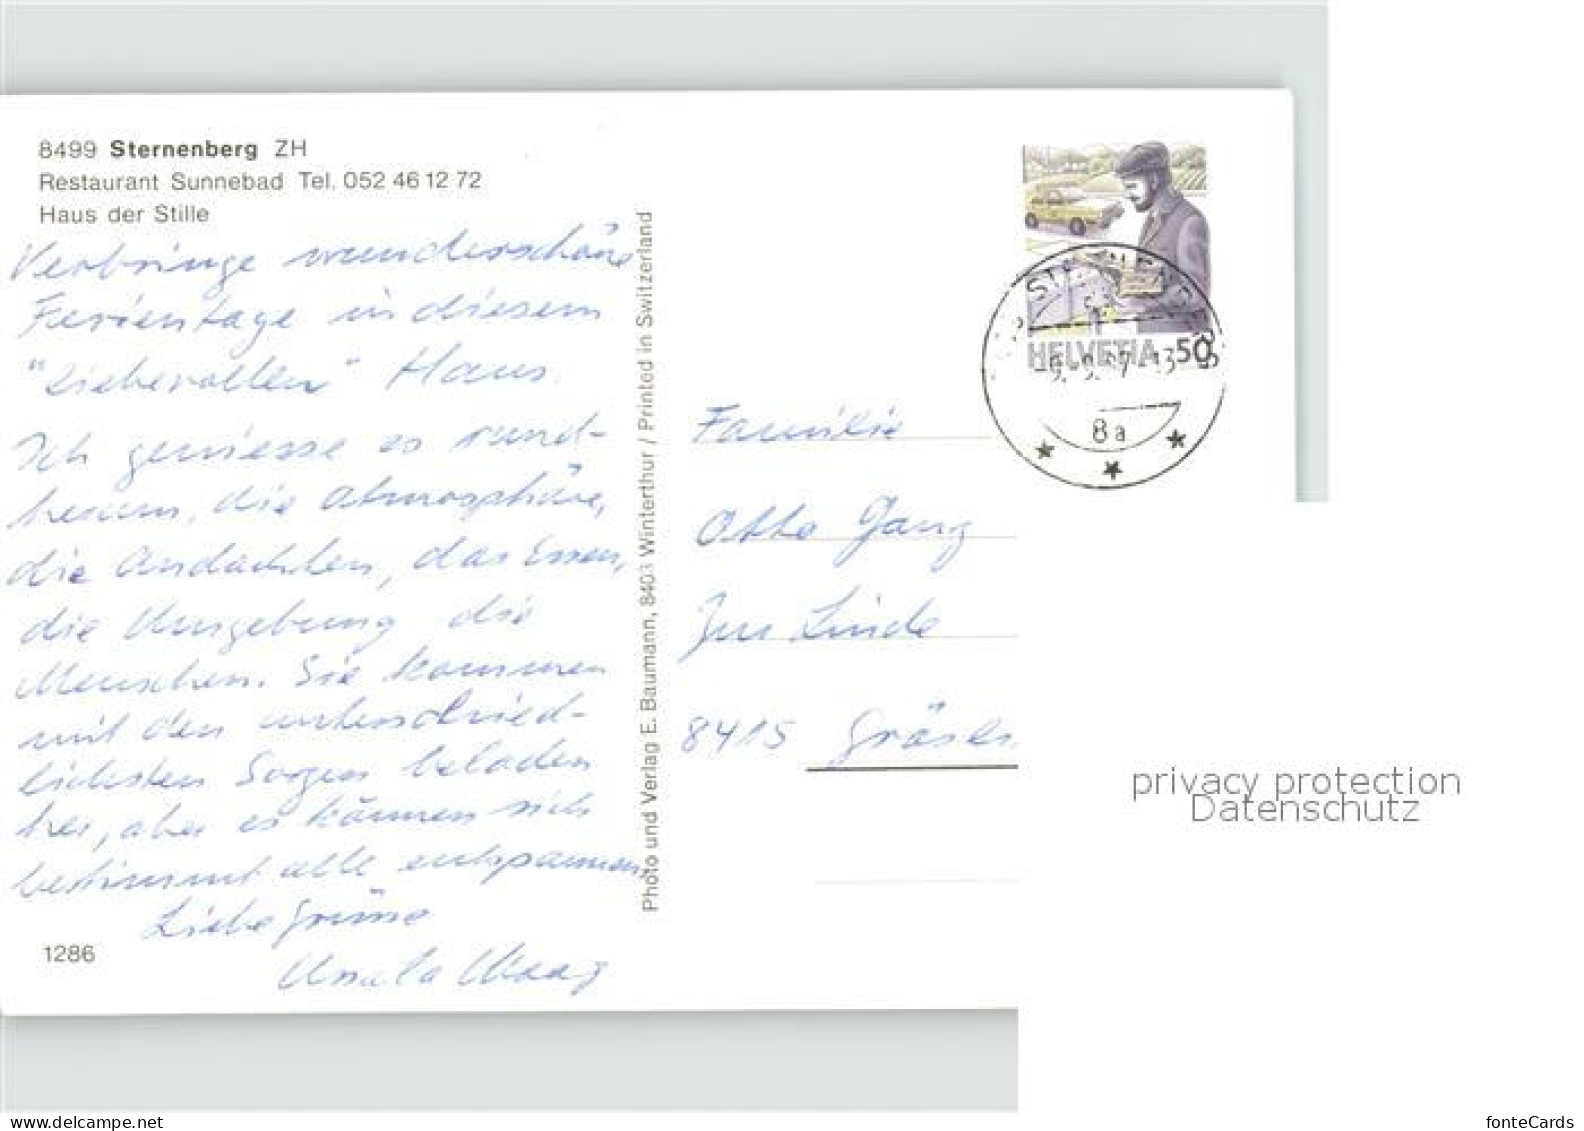 8499 Sternenberg ZH
Restaurant Sunnebad Tel. 052 46 12 72
Haus der Stille
Verbringe wunderschöne
Ferientage in diesem
"liebevollen" Haus.
Ich geniesse es rund-
herum, die Atmosphäre,
die Andachten, das Essen,
die Umgebung die
Menschen. Sie kommen
mit den unterschied-
lichsten Sorgen beladen
her, aber es können sich
bestimmt alle entspannen
Liebe Grüsse
Ursula Waag
1286
Photo und Verlag E. Baumann, 8403 Winterthur / Printed in Switzerland
Familie
Otto Ganz
Zur Linde
8415
HELVETIA 50
8a
privacy protection
Datenschutz
www.delcampe.net
fonteCards